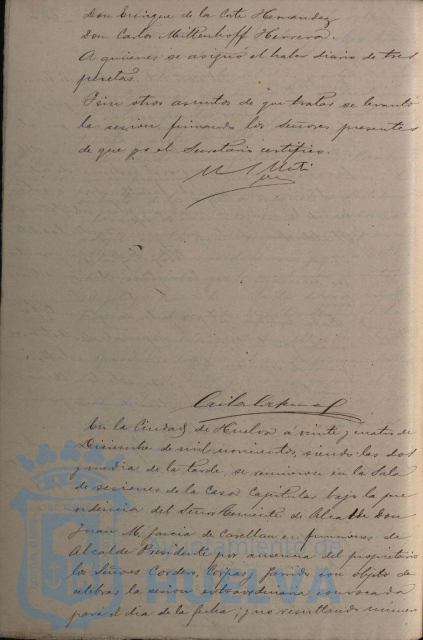 Don Enrique de la Corte Hernandez
Don Carlos Mittenhoff Herrera.
A quienes se asignó el haber diario de tres
pesetas.
Y sin otros asuntos de que tratar se levantó
la sesion, firmando los Señores presentes
de que yo el Secretario certifico.
En la Ciudad de Huelva á veinte y cuatro de
Diciembre de mil novecientos, siendo las dos
y media de la tarde, se reunieron en la Sala
de sesiones de la Casa Capitular bajo la pre
sidencia del Señor Teniente de Alcalde Don
Juan M. Garcia de en funciones de
Alcalde Presidente por ausencia del propietario
los Señores Cordero, y con objeto de
celebrar la sesion extraordinaria convocada
para el dia de la fecha; y no resultando